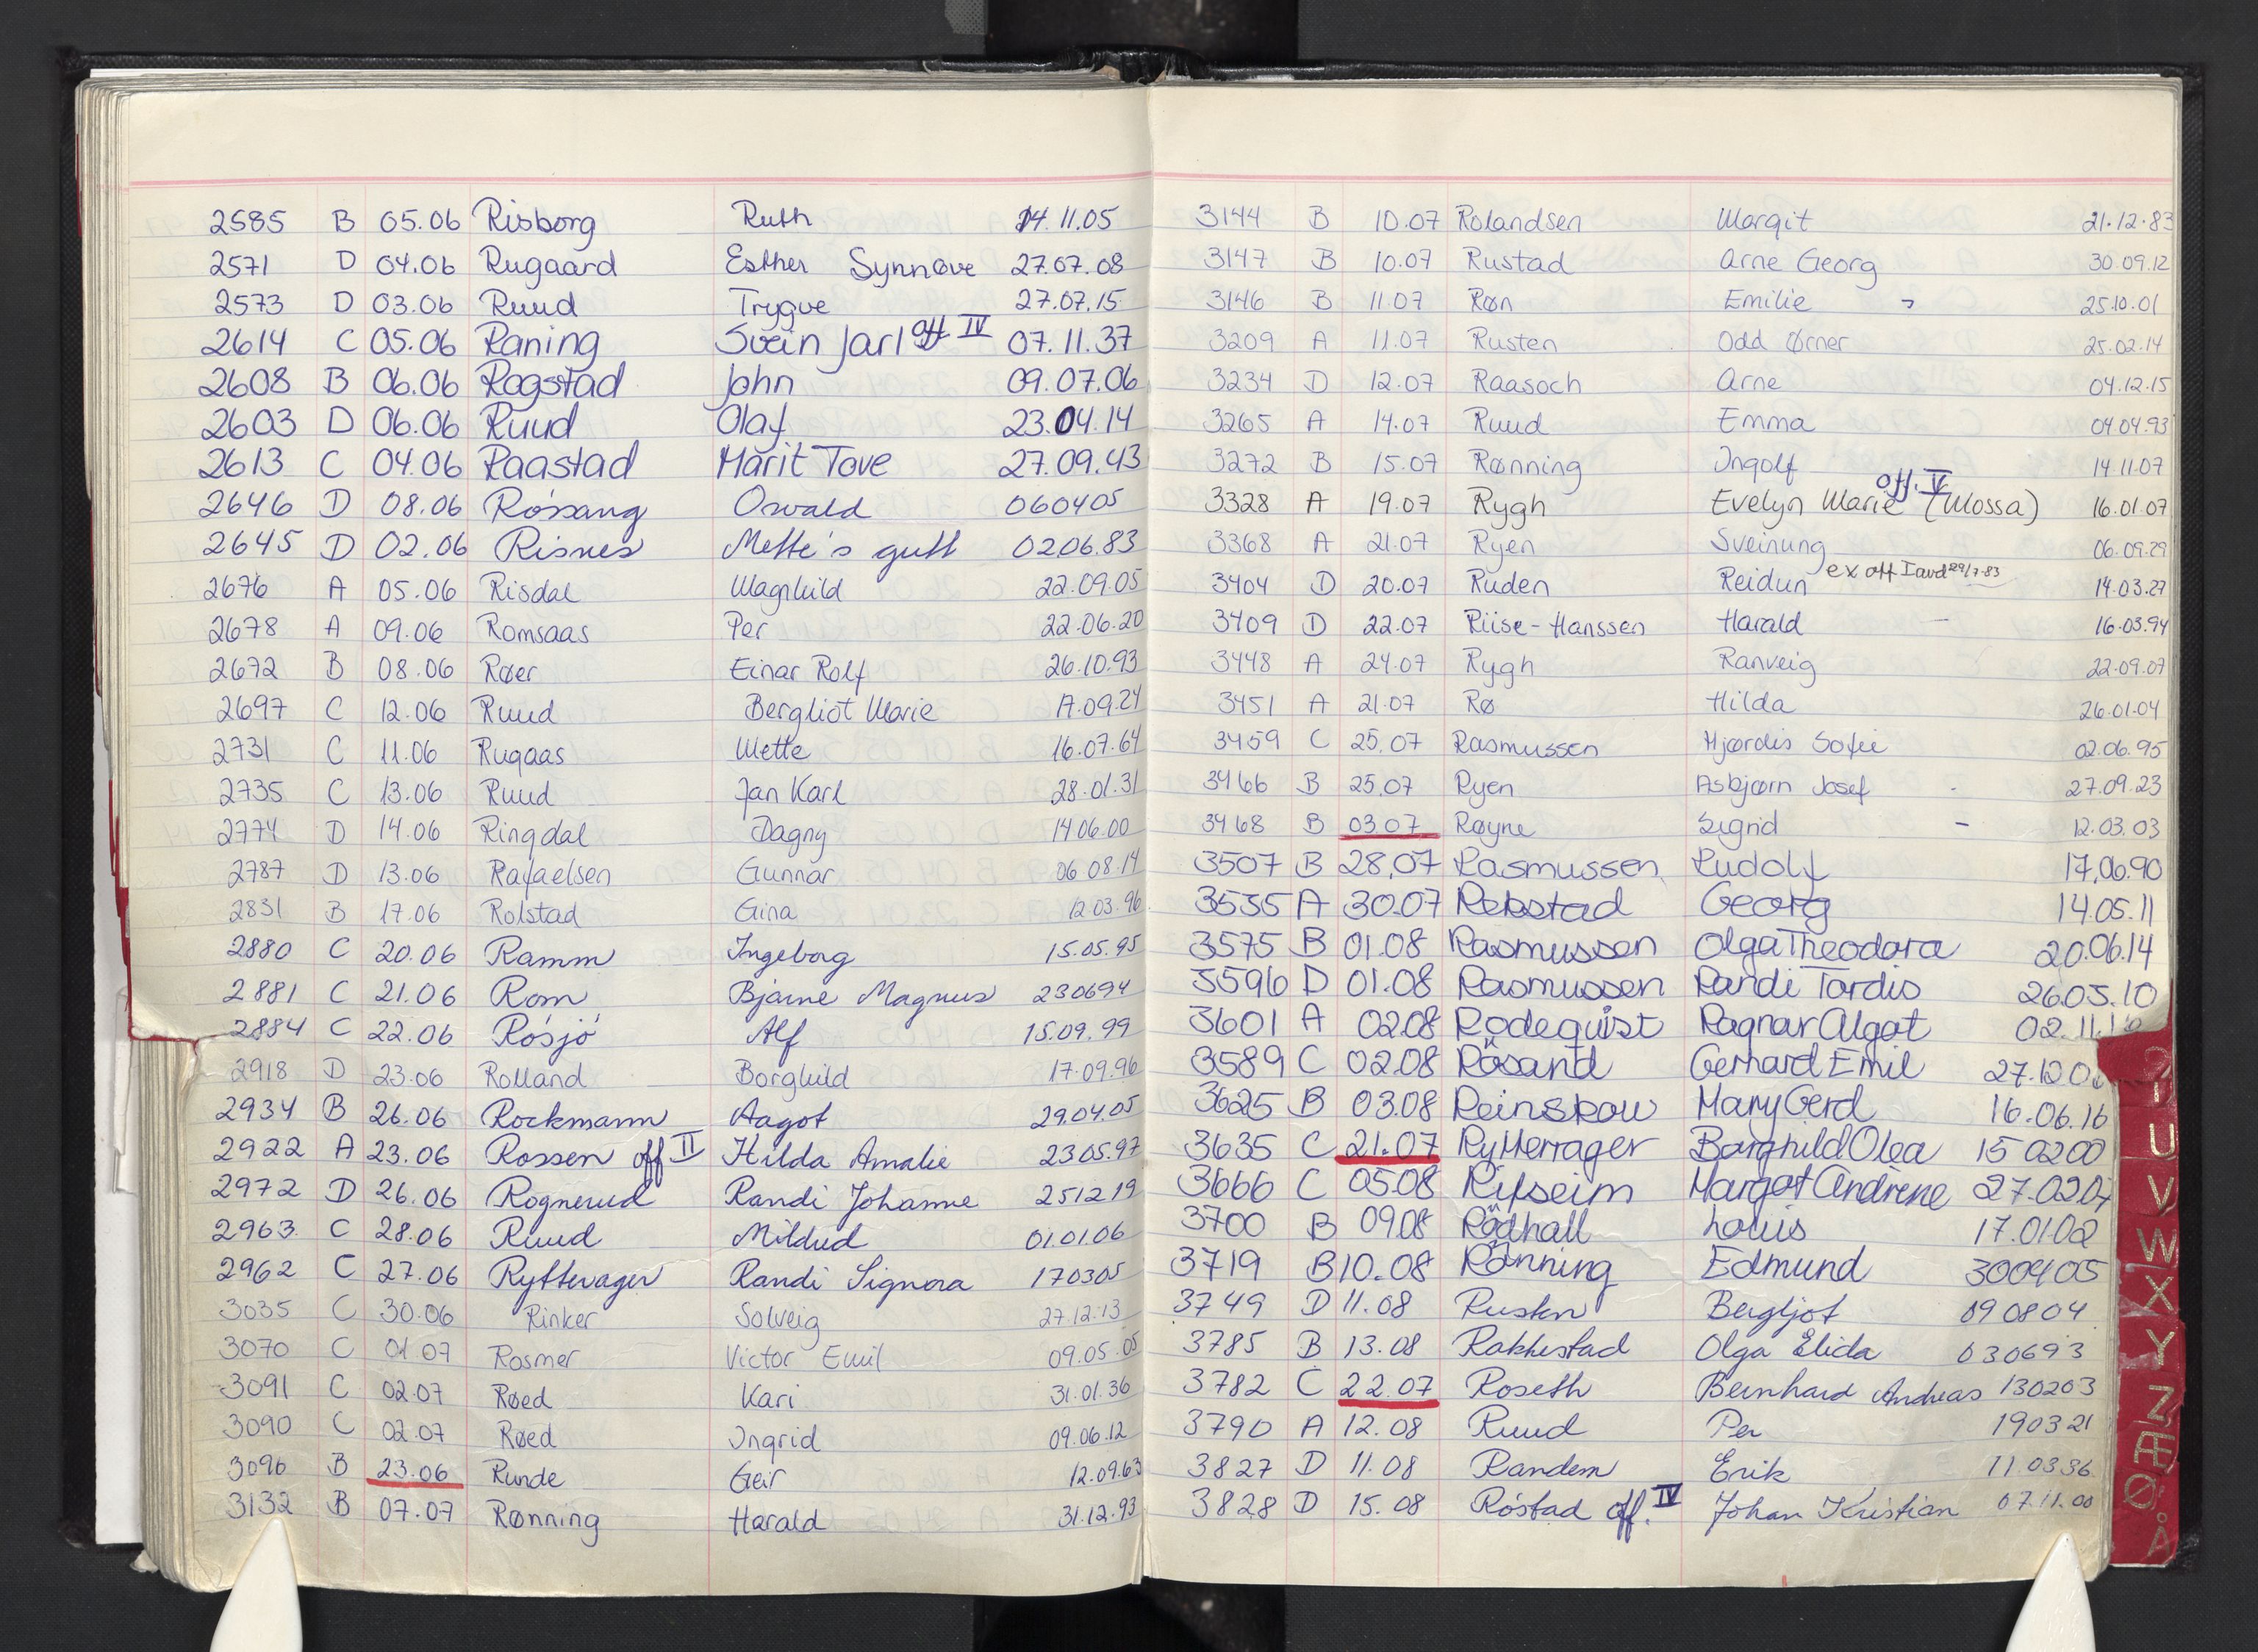 2585 B 05.06 Risborg Ruth 14.11.05
2571 D 04.06 Rugaard Esther Synnøve 27.07.08
2573 D 03.06 Ruud Trygve 27.07.15
2614 C 05.06 Raning Svein Jarl off IV 07.11.37
2608 B 06.06 Rogstad John 09.07.06
2603 D 06.06 Ruud Olaf 23.04.14
2613 C 04.06 Raastad Marit Tove 27.09.43
2646 D 08.06 Róssang Oswald 060405
2645 D 02.06 Risnes Mette's gutt 0206.83
2676 A 05.06 Risdal Magnhild 22.09.05
2678 A 09.06 Romsaas Per 22.06.20
2672 B 08.06 Røer Einar Rolf 26.10.93
2697 C 12.06 Ruud Bergliot Marie 17.09.24
2731 C 11.06 Rugaas Mette 16.07.64
2735 C 13.06 Ruud Jan Karl 28.01.31
2774 D 14.06 Ringdal Dagny 14.06.00
2787 D 13.06 Rafaelsen Gunnar 06.08.14
2831 B 17.06 Rolstad Gina 12.03.96
2880 C 20.06 Ramm Ingeborg 15.05.95
2881 C 21.06 Rom Bjarne Magnus 230694
2884 C 22.06 Rósjó Alf 15.09.99
2918 D 23.06 Rolland Borghild 17.09.96
2934 B 26.06 Rockmann Aagot 29.04.05
2922 A 23.06 Rossen off II Hilda Amalie 2305.97
2972 D 26.06 Rognerud Randi Johanne 251219
2963 C 28.06 Ruud Mildred 01.01.06
2962 C 27.06 Rytterager Randi Signora 170305
3035 C 30.06 Rinker Solveig 27.12.13
3070 C 01.07 Rosmer Victor Emil 09.05.05
3091 C 02.07 Røed Kari 31.01.36
3090 C 02.07 Røed Ingrid 09.06.12
3096 B 23.06 Runde Geir 12.09.63
3132 B 07.07 Rønning Harald 31.12.93
3144 B 10.07 Rolandsen Margit 21.12.83
3147 B 10.07 Rustad Arne Georg 30.09.12
3146 B 11.07 Røn Emilie 25.10.01
3209 A 11.07 Rusten Odd Ørner 25.02.14
3234 D 12.07 Raasoch Arne 04.12.15
3265 A 14.07 Ruud Emma 04.04.93
3272 B 15.07 Rønning Ingolf 14.11.07
3328 A 19.07 Rygh Evelyn Marie off. V (Mossa) 16.01.07
3368 A 21.07 Ryen Sveinung 06.09.29
3404 D 20.07 Ruden Reidun ex off I avd 29/7-83 14.03.27
3409 D 22.07 Riise-Hanssen Harald 16.03.94
3448 A 24.07 Rygh Ranveig 22.09.07
3451 A 21.07 Rø Hilda 26.01.04
3459 C 25.07 Rasmussen Hjørdis Sofie 02.06.95
3466 B 25.07 Ryen Asbjørn Josef 27.09.23
3468 B 03.07 Røyne Sigrid 12.03.03
3507 B 28.07 Rasmussen Rudolf 17.06.90
3535 A 30.07 Rekstad Georg 14.05.11
3575 B 01.08 Rasmussen Olga Theodora 20.06.14
3596 D 01.08 Rasmussen Randi Tordis 26.05.10
3601 A 02.08 Rodequist Ragnar Algot 02.11.
3589 C 02.08 Rösand Gerhard Emil 27.12.0
3625 B 03.08 Reinskou Mary Gerd 16.06.16
3635 C 21.07 Rytterrager Borghild Olea 15 0200
3666 C 05.08 Rifseim Margot Andrene 27.02.07
3700 B 09.08 Rödhall Louis 17.01.02
3719 B 10.08 Rönning Edmund 300405
3749 D 11.08 Rusten Bergljot 090804
3785 B 13.08 Rakkestad Olga Elida 030693
3782 C 22.07 Roseth Bernhard Andreas 130203
3790 A 12.08 Ruud Per 190321
3827 D 11.08 Randem Erik 110336
3828 D 15.08 Róstad off. IV Johan Kristian 07.11.00
U
V
W
X
Y
Z
Æ
Ø
Å